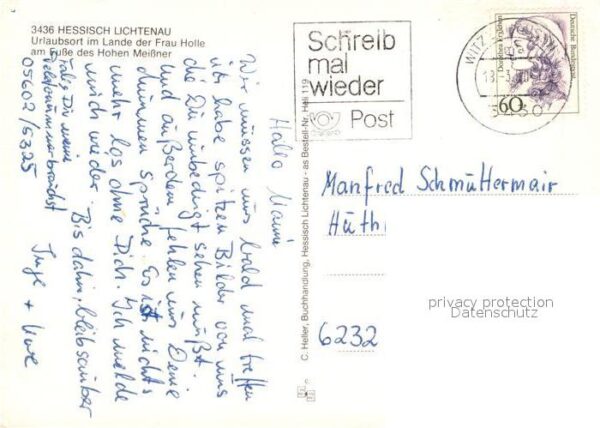 3436 HESSISCH LICHTENAU
Urlaubsort im Lande der Frau Holle
am Fuße des Hohen Meißner
Hallo Manni
Wir müssen uns bald mal treffen
ich habe spitzen Bilder von uns
die Du unbedingt sehen mußt.
und außerdem fehlen uns Deine
dummen Sprüche. Es ist nichts
mehr los ohne Dich. Ich melde
mich wieder. Bis dahin, bleib sauber
Inge + Uwe
Falls Du meine
Telefonnummer brauchst
05602/5325
C. Heller, Buchhandlung, Hessisch Lichtenau - as Bestell-Nr. Heli 119
Schreib
mal
wieder
Post
WITZ
18. 3.
3430
Dorothea Erxleben
Deutsche Bundespost
60
Manfred Schmuttermair
Hüth
6232
privacy protection
Datenschutz